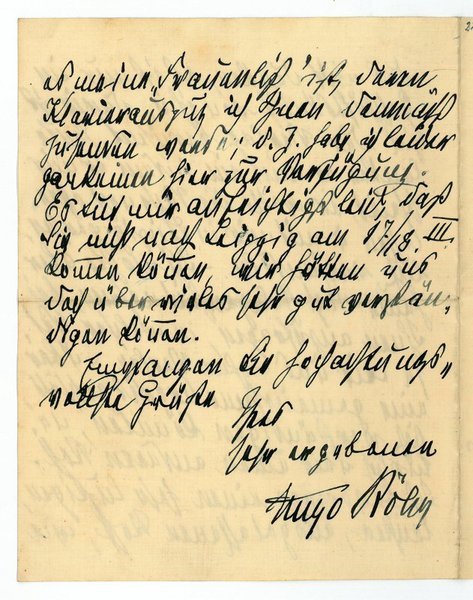 es meine „Frauenlist" ist, deren
Klavierauszug ich Ihnen demnächst
zusenden werde; d. Z. habe ich leider
gar keinen hier zur Verfügung.
Es tut mir aufrichtigst leid, daß
Sie nicht nach Leipzig am 17/18. III.
kommen können, wir hätten uns
doch über vieles sehr gut verstän-
digen können.
Empfangen Sie hochachtungs-
vollste Grüße
Ihres
sehr ergebenen
Hugo Röhr